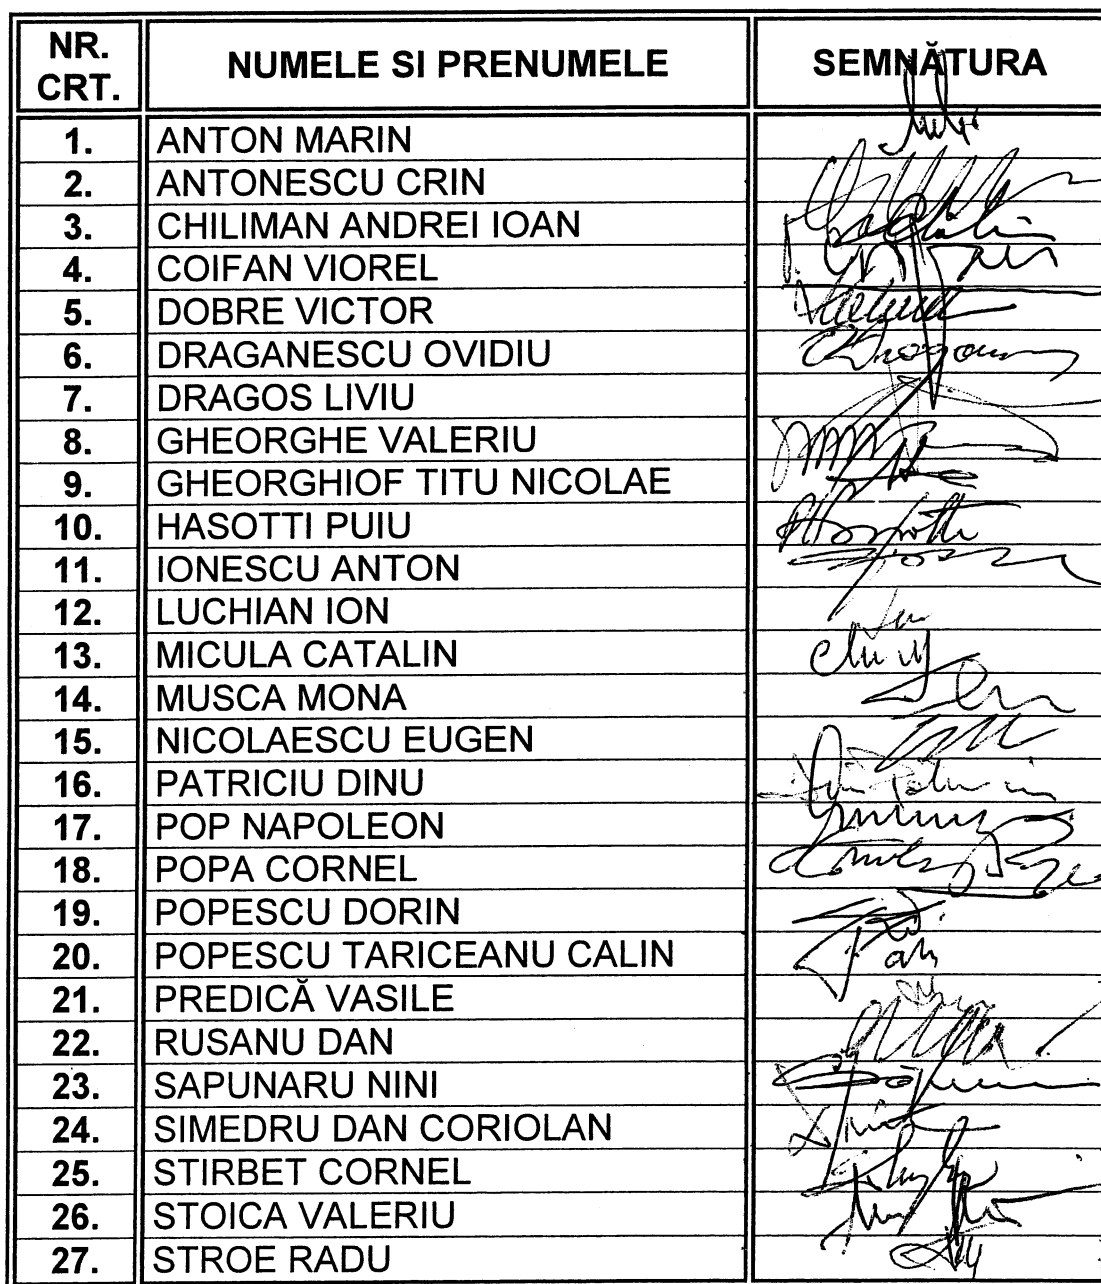 NR. CRT. NUMELE SI PRENUMELE SEMNĂTURA
1. ANTON MARIN
2. ANTONESCU CRIN
3. CHILIMAN ANDREI IOAN
4. COIFAN VIOREL
5. DOBRE VICTOR
6. DRAGANESCU OVIDIU
7. DRAGOS LIVIU
8. GHEORGHE VALERIU
9. GHEORGHIOF TITU NICOLAE
10. HASOTTI PUIU
11. IONESCU ANTON
12. LUCHIAN ION
13. MICULA CATALIN
14. MUSCA MONA
15. NICOLAESCU EUGEN
16. PATRICIU DINU
17. POP NAPOLEON
18. POPA CORNEL
19. POPESCU DORIN
20. POPESCU TARICEANU CALIN
21. PREDICĂ VASILE
22. RUSANU DAN
23. SAPUNARU NINI
24. SIMEDRU DAN CORIOLAN
25. STIRBET CORNEL
26. STOICA VALERIU
27. STROE RADU